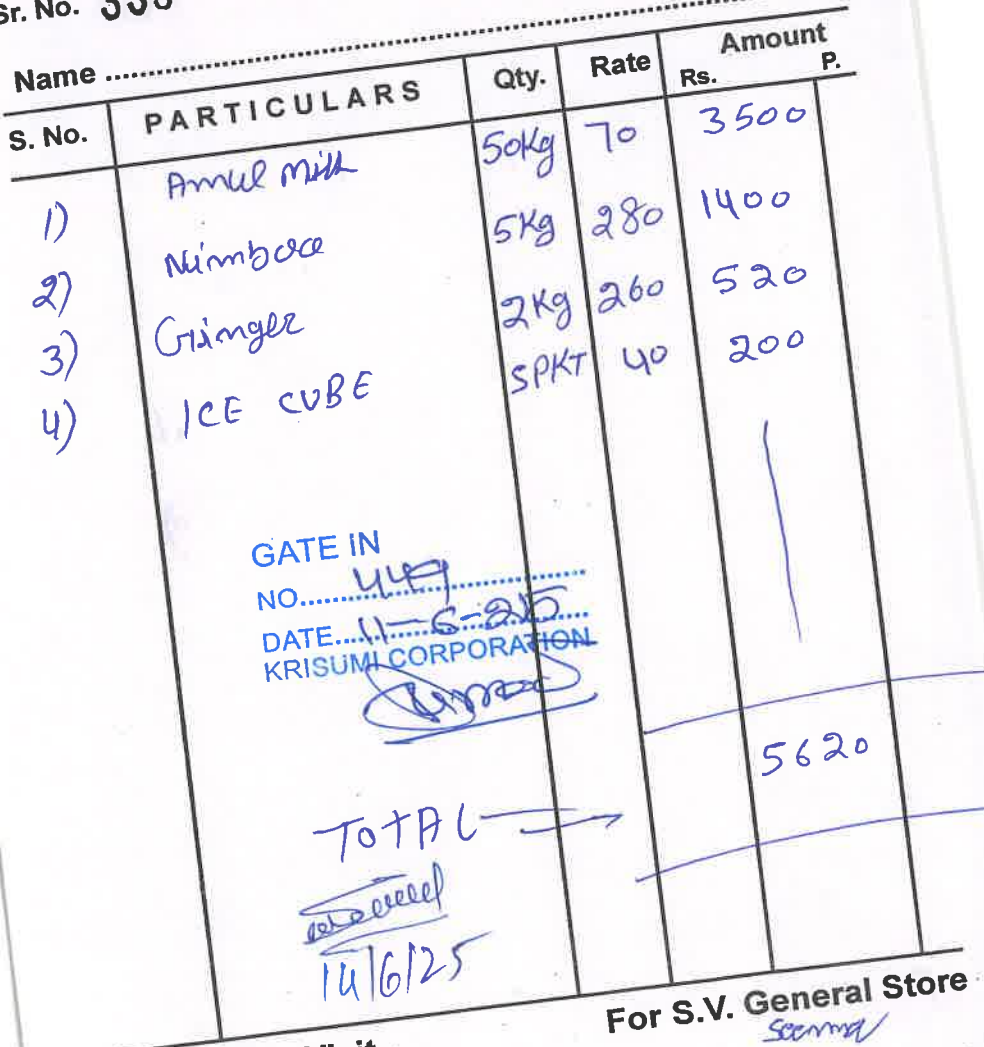 Sr. No. 338
Name
S. No. PARTICULARS Qty. Rate Amount
Rs. P.
1) Amul milk 50Kg 70 3500
2) Nimbooo 5Kg 280 1400
3) Ginger 2Kg 260 520
4) ICE CUBE 5PKT 40 200
GATE IN
NO. 449
DATE 11-6-25
KRISUMI CORPORATION
5620
TOTAL
14/6/25
For S.V. General Store